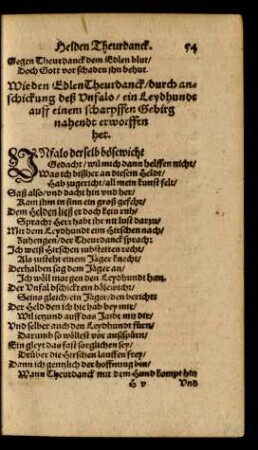 Helden Theurdanck. 54
Gegen Theurdanck dem Edlen blut/
Doch Gott vor schaden ihn behut.
Wie den Edlen Theurdanck/durch an-
schickung deß Vnfalo/ein Leydhundt
auff einem scharpffen Gebirg
nahendt erworffen
het.
VNfalo derselb bösewicht
Gedacht/wil mich dann helffen nicht/
Was ich bißher an diesem Heldt/
Hab zugericht/all mein kunst felt/
Saß also/vnd dacht hin vnd her/
Kam ihm in sinn ein groß gefahr/
Dem Helden ließ er doch kein ruh/
Sprach: Herr habt ihr nit lust darzu/
Mit dem Leydhundt ein Hirschen nach/
Zuhengen/der Theurdanck sprach:
Ich weiß Hirschen
Als Jäger knecht/
Derhalben sag dem Jäger an/
Ich wöll morgen den Leydhundt han.
Der Vnfal bschickt ein bößwicht/
Seins gleich/ein Jäger/den bericht:
Der Held den ich hie hab bey mir/
Wil jetzund auff das Jaidt mit dir/
Vnd selber auch den Leydhundt fürn/
Darumb so wöllest vor außspürn/
Ein gleyt das fast sorglichen sey/
Drüber die Hirschen lauffen frey/
Dann ich gentzlich der hoffnung bin/
Wann Theurdanck mit dem Hund kompt hin
H v Vnd